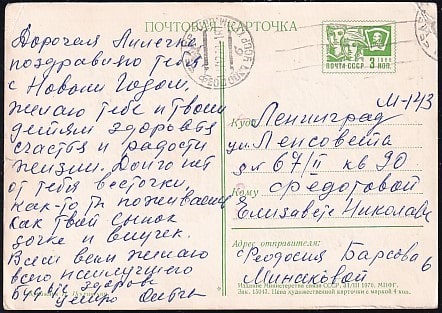 ПОЧТОВАЯ КАРТОЧКА
Дорогая Лилечка
поздравляю тебя
с Новым Годом,
желаю тебе и твоим
детям здоровья
счастья и радости
жизни. Долго нет
от тебя весточки,
как-то ты поживаешь
как твой сынок
дочка и внучек.
Всем вам желаю
всего наилучшего
будьте здоровы
ПОЧТА СССР 3 КОП.
М-143
Куда Ленинград
ул. Ленсовета
д 67/II кв 90
Кому
Елизавете Николаев
Адрес отправителя:
Феодосия Барсова 6
Минаковой
Издание Министерства связи СССР. 31/III 1970. МПФГ.
Зак. 15047. Цена художественной карточки с маркой 4 коп.